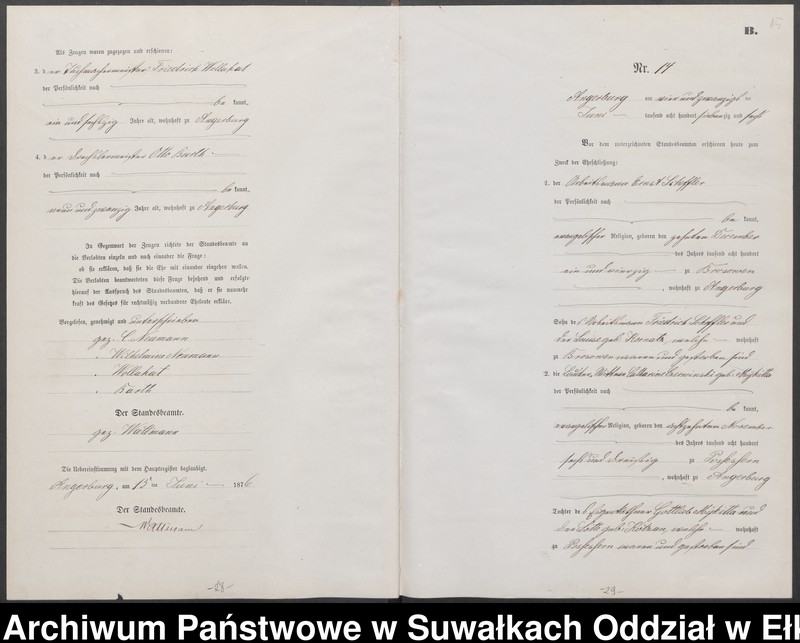 Als Zeugen waren zugezogen und erschienen:
3. d er Friedrich Wollschat
der Persönlichkeit nach
be kannt,
ein und sechszig Jahre alt, wohnhaft zu Angerburg
4. d er Drechslermeister Otto Barth
der Persönlichkeit nach
be kannt,
neun und zwanzig Jahre alt, wohnhaft zu Angerburg
In Gegenwart der Zeugen richtete der Standesbeamte an
die Verlobten einzeln und nach einander die Frage:
ob sie erklären, daß sie die Ehe mit einander eingehen wollen.
Die Verlobten beantworteten diese Frage bejahend und erfolgte
hierauf der Ausspruch des Standesbeamten, daß er sie nunmehr
kraft des Gesetzes für rechtmäßig verbundene Eheleute erkläre.
Vorgelesen, genehmigt und unterschrieben
gez. Neumann
" Wilhelmine Neumann
" Wollschat
" Barth
Der Standesbeamte.
gez. Wallmann
Die Uebereinstimmung mit dem Hauptregister beglaubigt.
Angerburg, am 15 ten Juni 1876
Der Standesbeamte.
Wallmann
-28-
B.
Nr. 14
Angerburg am vier und zwanzigsten
Juni tausend acht hundert siebenzig und sechs
Vor dem unterzeichneten Standesbeamten erschienen heute zum
Zweck der Eheschließung:
1. der Arbeitsmann Ernst Scheffler
der Persönlichkeit nach
be kannt,
evangelischer Religion, geboren den zehnten December
des Jahres tausend acht hundert
ein und vierzig zu Brosowen
, wohnhaft zu Angerburg
Sohn des Arbeitsmann Friedrich Scheffler und
der Luise geb. welche wohnhaft
zu Brosowen waren und gestorben sind
2. die Wittwe Catharine geb.
der Persönlichkeit nach
be kannt,
evangelischer Religion, geboren den November
des Jahres tausend acht hundert
sechs und dreissig zu Possessern
, wohnhaft zu Angerburg
Tochter des Eigenkäthner Gottlieb und
der Lotte geb. welche wohnhaft
zu Possessern waren und gestorben sind
-29-
Archiwum Państwowe w Suwałkach Oddział w Eł